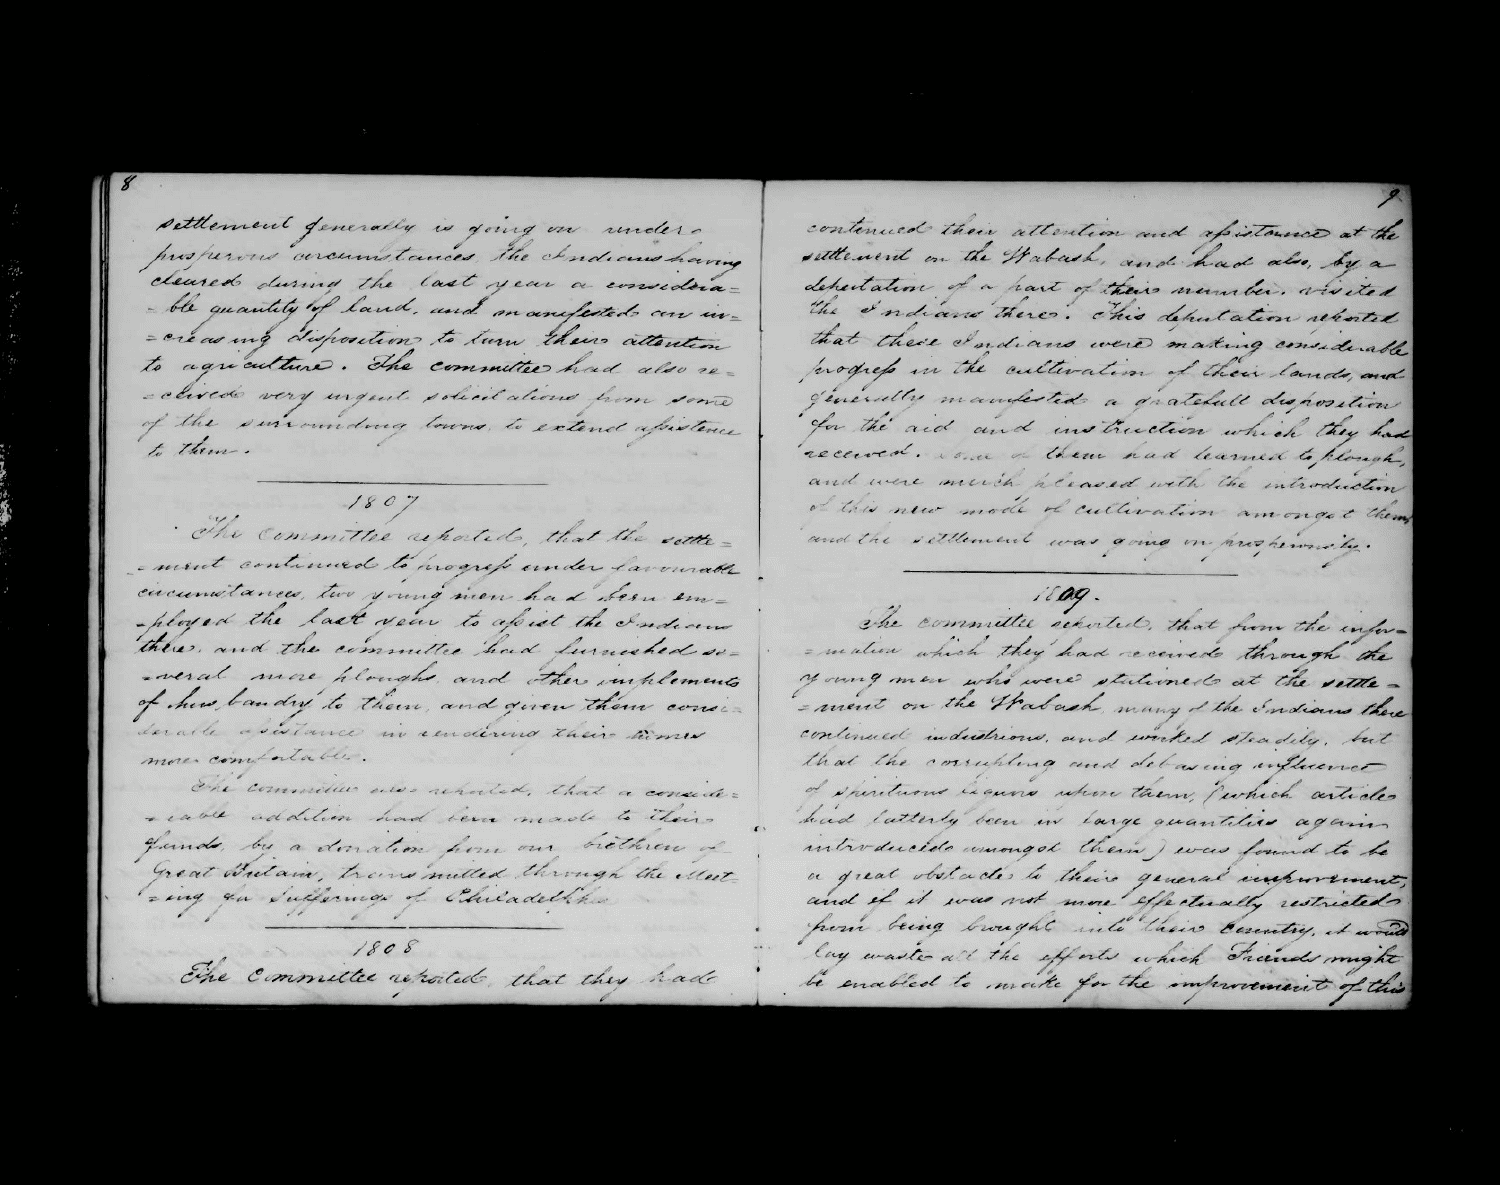 8
settlement generally is going on under
prosperous circumstances, the Indians having
cleared during the last year a considera=
=ble quantity of land, and manifested an in=
=creasing disposition to turn their attention
to agriculture. The committee had also re=
=ceived very urgent solicitations from some
of the surrounding towns, to extend assistence
to them.
1807
The committee reported, that the settle=
=ment continued to progress under favourable
circumstances, two young men had been em=
=ployed the last year to assist the Indians
there, and the committee had furnished se=
=veral more ploughs and other implements
of husbandry to them, and given them consi=
derable assistance in rendering their homes
more comfortable.
The committee also reported, that a conside=
=rable addition had been made to their
funds, by a donation from our brethren of
Great Britain, transmitted through the Meet=
=ing for Sufferings of Philadelphia
1808
The committee reported, that they had
9
continued their attention and assistance at the
settlement on the Wabash, and had also, by a
deputation of a part of their number, visited
the Indians there. This deputation reported
that these Indians were making considerable
progress in the cultivation of their lands, and
generally manifested a gratefull disposition
for the aid and instruction which they had
received. Some of them had learned to plough,
and were much pleased with the introduction
of this new mode of cultivation amongst them,
and the settlement was going on prosperously.
1809.
The committee reported, that from the infor=
=mation which they had received through the
young men who were stationed at the settle=
=ment on the Wabash, many of the Indians there
continued industrious, and worked steadily, but
that the corrupting and debasing influence
of spirituous liquors upon them, (which article
had latterly been in large quantities again
introduced amongst them) was found to be
a great obstacle to their general improvement,
and if it was not more effectually restricted
from being brought into their country, it would
lay waste all the efforts which Friends might
be enabled to make for the improvement of this